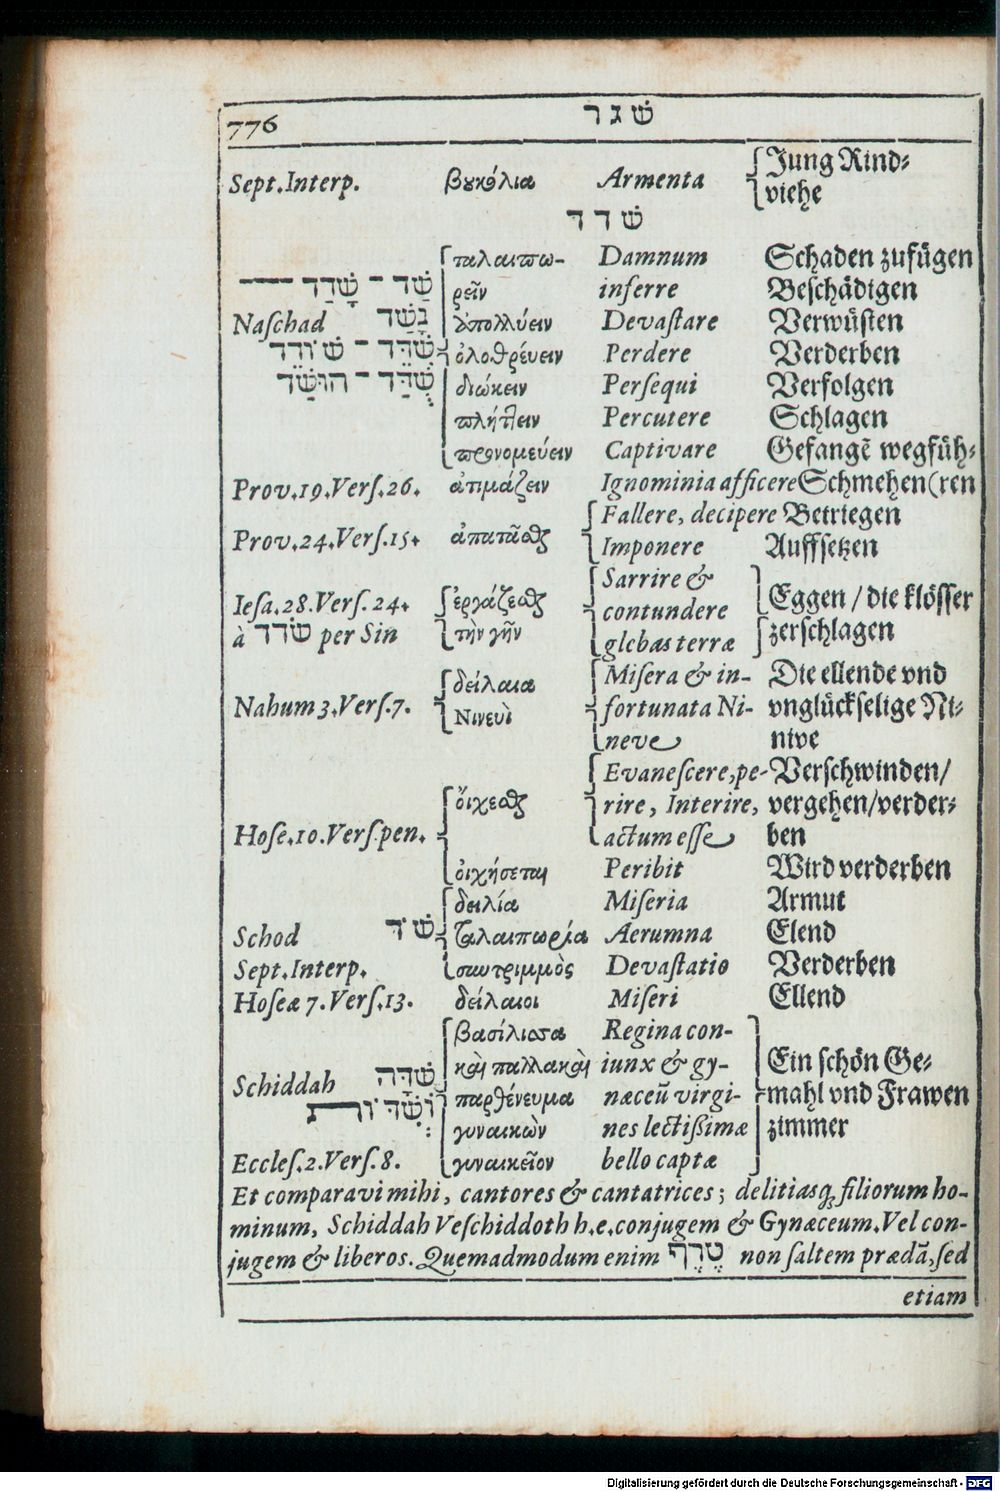 776 שׁגר
Sept. Interp. βȣκόλια Armenta Jung Rind-
viehe
שׁדד
ταλαιπω- Damnum Schaden zufügen
שַׁד - שָׁדַד ρεῖν inferre Beschädigen
Naſchad נָשַׁד ἀπολλύειν Devaſtare Verwüſten
שֻׁדַּד - שׁוֹדֵד ὀλοθρέυειν Perdere Verderben
שֻׁדַּד - הוּשַּׁד διώκειν Perſequi Verfolgen
πλήττειν Percutere Schlagen
προνομεύειν Captivare Gefangẽ wegfüh-
Prov. 19. Verſ. 26. ἀτιμάζειν Ignominia afficere Schmehen (ren
Fallere, decipere Betriegen
Prov. 24. Verſ. 15. ἀπατᾶσθαι Imponere Auffſetzen
Sarrire &
Ieſa. 28. Verſ. 24. ἐργάζεσθαι contundere Eggen / die klöſſer
à שׂדד per Sin τὴν γῆν glebas terræ zerſchlagen
δείλαια Miſera & in- Die ellende vnd
Nahum 3. Verſ. 7. Νινευὶ fortunata Ni- vnglückſelige Ni-
neve nive
Evaneſcere, pe- Verſchwinden/
ὄιχεσθαι rire, Interire, vergehen/verder-
Hoſe. 10. Verſ. pen. actum eſſe ben
ὀιχήσεται Peribit Wird verderben
δειλία Miſeria Armut
Schod שֹׁד ταλαιπωρία Aerumna Elend
Sept. Interp. συντριμμὸς Devaſtatio Verderben
Hoſeæ 7. Verſ. 13. δείλαιοι Miſeri Ellend
βασίλισσα Regina con-
Schiddah שִׁדָּה καὶ παλλακαὶ iunx & gy- Ein ſchön Ge-
וְשִׁדּוֹת: παρθένευμα næceũ virgi- mahl vnd Frawen
γυναικῶν nes lectißimæ zimmer
Eccleſ. 2. Verſ. 8. γυναικεῖον bello captæ
Et comparavi mihi, cantores & cantatrices; delitiasq; filiorum ho-
minum, Schiddah Veſchiddoth h. e. conjugem & Gynæceum. Vel con-
jugem & liberos. Quemadmodum enim טֶרֶף non ſaltem prædã, ſed
etiam
Digitalisierung gefördert durch die Deutsche Forschungsgemeinschaft - DFG